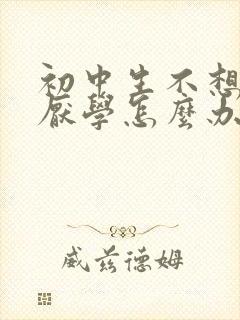 初中生不想
厭學怎麼办
威茲德姆